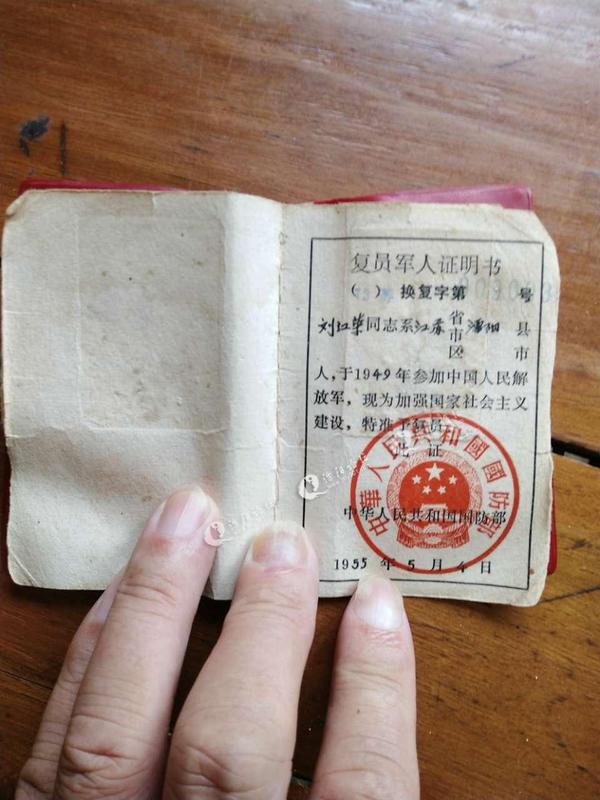 复员军人证明书
( ) 换复字第 号
刘 同志系江苏省 溧阳 县
市
区 市
人，于1949年参加中国人民解
放军，现为加强国家社会主义
建设，特准予复员。
此 证
中华人民共和国国防部
1955年5月4日
中華人民共和國國防部